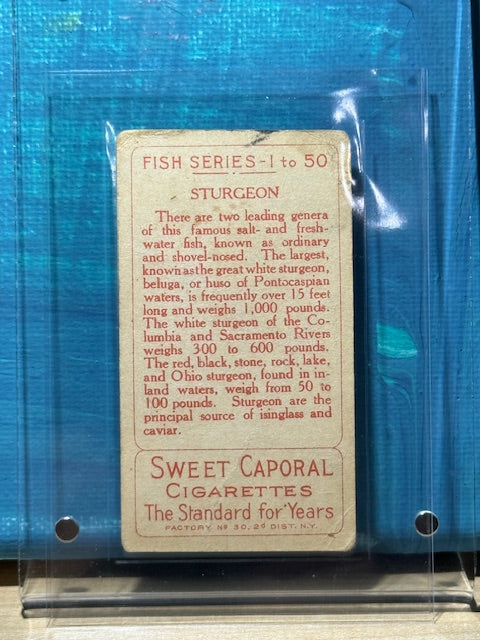 FISH SERIES - 1 to 50
STURGEON
There are two leading genera
of this famous salt- and fresh-
water fish, known as ordinary
and shovel-nosed. The largest,
known as the great white sturgeon,
beluga, or huso of Pontocaspian
waters, is frequently over 15 feet
long and weighs 1,000 pounds.
The white sturgeon of the Co-
lumbia and Sacramento Rivers
weighs 300 to 600 pounds.
The red, black, stone, rock, lake,
and Ohio sturgeon, found in in-
land waters, weigh from 50 to
100 pounds. Sturgeon are the
principal source of isinglass and
caviar.
SWEET CAPORAL
CIGARETTES
The Standard for Years
FACTORY No 30, 2d DIST. N.Y.